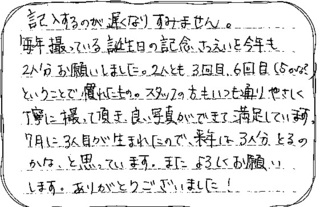 記入するのが遅くなりすみません。
毎年撮っている誕生日の記念、今年も
2人分お願いしました。2人とも3回目、6回目(5かな?)
ということで慣れたもの。スタッフの方もいつも通りやさしく
丁寧に撮って頂き、良い写真ができて満足しています。
7月に3人目が生まれたので、来年は、3人分とるの
かな、と思っています。またよろしくお願い
します。ありがとうございました!